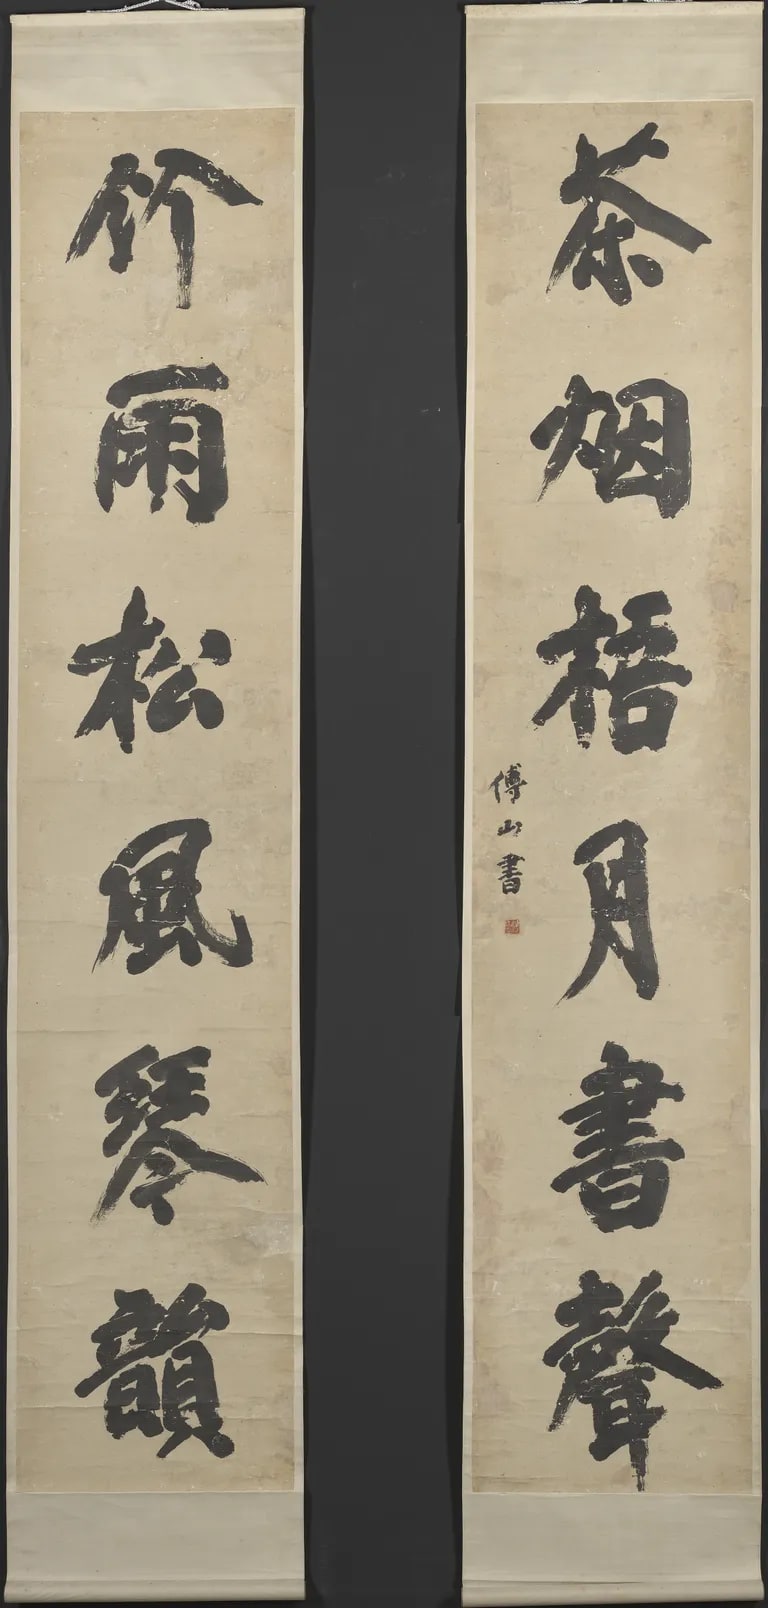 茶烟梧月書聲
傅山書
竹雨松風琴韻